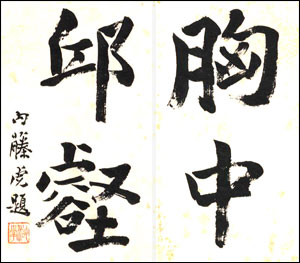 胸中
邱壑
内藤虎題